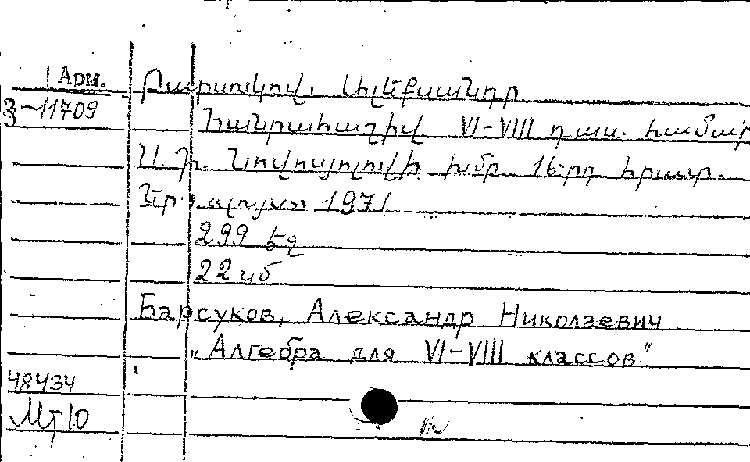 Арм.
Բարսուկով, Ալեքսանդր
3-11709
Հանրահաշիվ VI-VIII դաս. համար
Ս. Ի. Նովոսյոլովի խմբ. 16-րդ հրատ.
1971
299 էջ
22 սմ
Барсуков, Александр Николаевич
"Алгебра для VI-VIII классов"
48434